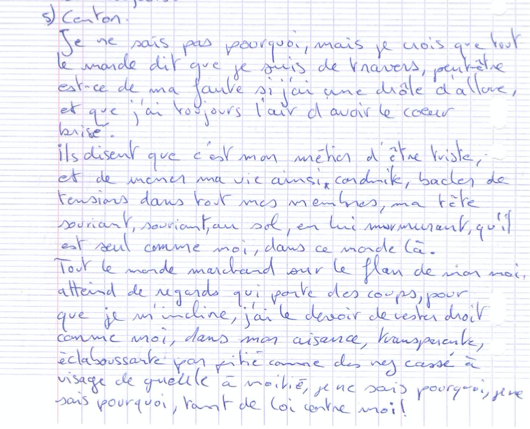 5) Canton.
Je ne sais pas pourquoi, mais je crois que tout
le monde dit que je suis de travers, peut-être
est-ce de ma faute si j'ai une drôle d'allure,
et que j'ai toujours l'air d'avoir le coeur
brisé.
ils disent que c'est mon métier d'être triste,
et de mener ma vie ainsi, conduite, bacler de
tensions dans tout mes membres, ma tête
souriant, souriant, au sol, en lui murmurant, qu'il
est seul comme moi, dans ce monde là.
Tout le monde marchand sur le flan de mon moi,
atteind de regards qui porte des coups, pour
que je m'incline, j'ai le devoir de rester droit
comme moi, dans mon aisance, transparente,
éclaboussante par pitié comme des nez cassé à
visage de gueule à moitié, je ne sais pourquoi, je ne
sais pourquoi, tant de loi contre moi!